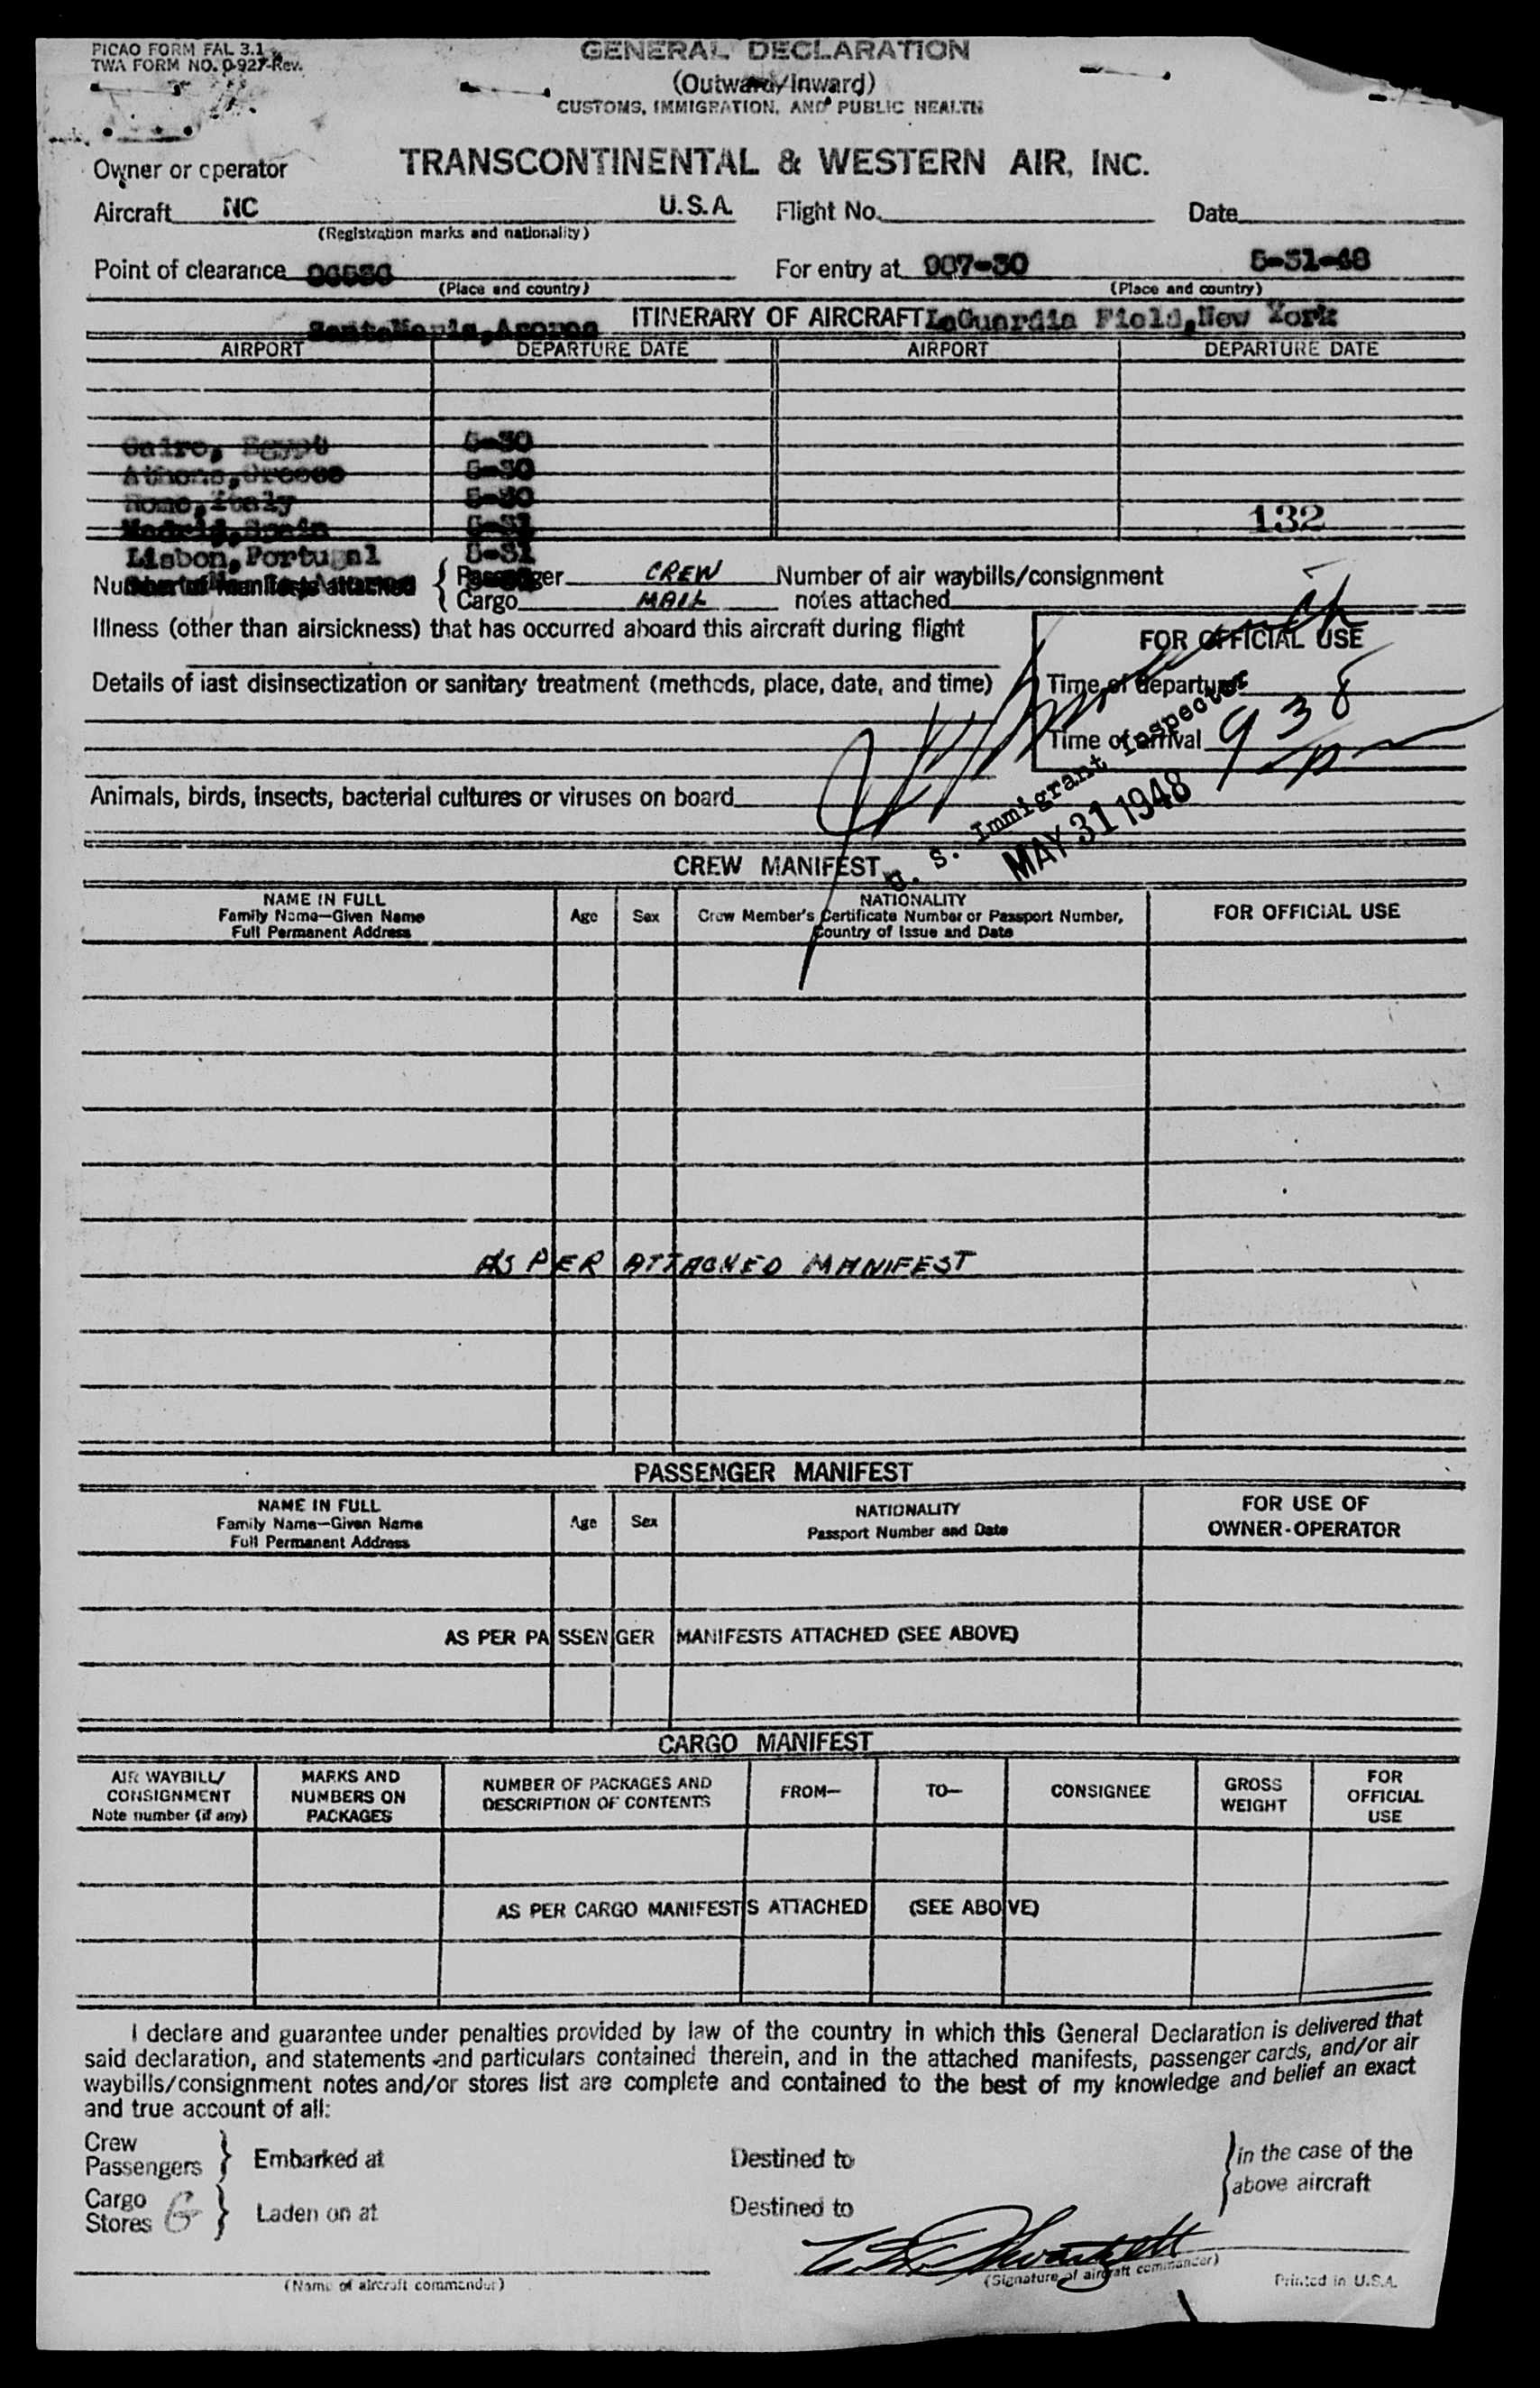 PICAO FORM FAL 3.1
TWA FORM NO. 0-927-Rev.
GENERAL DECLARATION
(Outward/Inward)
CUSTOMS, IMMIGRATION, AND PUBLIC HEALTH
Owner or operator TRANSCONTINENTAL & WESTERN AIR, INC.
Aircraft NC U.S.A. Flight No. Date
(Registration marks and nationality)
Point of clearance For entry at 907-30 5-31-48
(Place and country) (Place and country)
ITINERARY OF AIRCRAFT LaGuardia Field, New York
Santa Maria, Azores
AIRPORT DEPARTURE DATE AIRPORT DEPARTURE DATE
Cairo, Egypt 5-30
Athens, Greece 5-30
Rome, Italy 5-30
Madrid, Spain 5-31 132
Lisbon, Portugal 5-31
Number of manifests attached { Passenger CREW Number of air waybills/consignment
Cargo MAIL notes attached
Illness (other than airsickness) that has occurred aboard this aircraft during flight
FOR OFFICIAL USE
Details of last disinsectization or sanitary treatment (methods, place, date, and time)
Time of departure
Time of arrival 938 p
Animals, birds, insects, bacterial cultures or viruses on board
U. S. Immigrant Inspector
MAY 31 1948
CREW MANIFEST
NAME IN FULL
Family Name—Given Name
Full Permanent Address
Age Sex
NATIONALITY
Crew Member's Certificate Number or Passport Number,
Country of Issue and Date
FOR OFFICIAL USE
AS PER ATTACHED MANIFEST
PASSENGER MANIFEST
NAME IN FULL
Family Name—Given Name
Full Permanent Address
Age Sex
NATIONALITY
Passport Number and Date
FOR USE OF
OWNER-OPERATOR
AS PER PASSENGER MANIFESTS ATTACHED (SEE ABOVE)
CARGO MANIFEST
AIR WAYBILL/
CONSIGNMENT
Note number (if any)
MARKS AND
NUMBERS ON
PACKAGES
NUMBER OF PACKAGES AND
DESCRIPTION OF CONTENTS
FROM—
TO—
CONSIGNEE
GROSS
WEIGHT
FOR
OFFICIAL
USE
AS PER CARGO MANIFESTS ATTACHED (SEE ABOVE)
I declare and guarantee under penalties provided by law of the country in which this General Declaration is delivered that
said declaration, and statements and particulars contained therein, and in the attached manifests, passenger cards, and/or air
waybills/consignment notes and/or stores list are complete and contained to the best of my knowledge and belief an exact
and true account of all:
Crew
Passengers } Embarked at Destined to } in the case of the
above aircraft
Cargo
Stores 6 } Laden on at Destined to
(Name of aircraft commander) (Signature of aircraft commander) Printed in U.S.A.